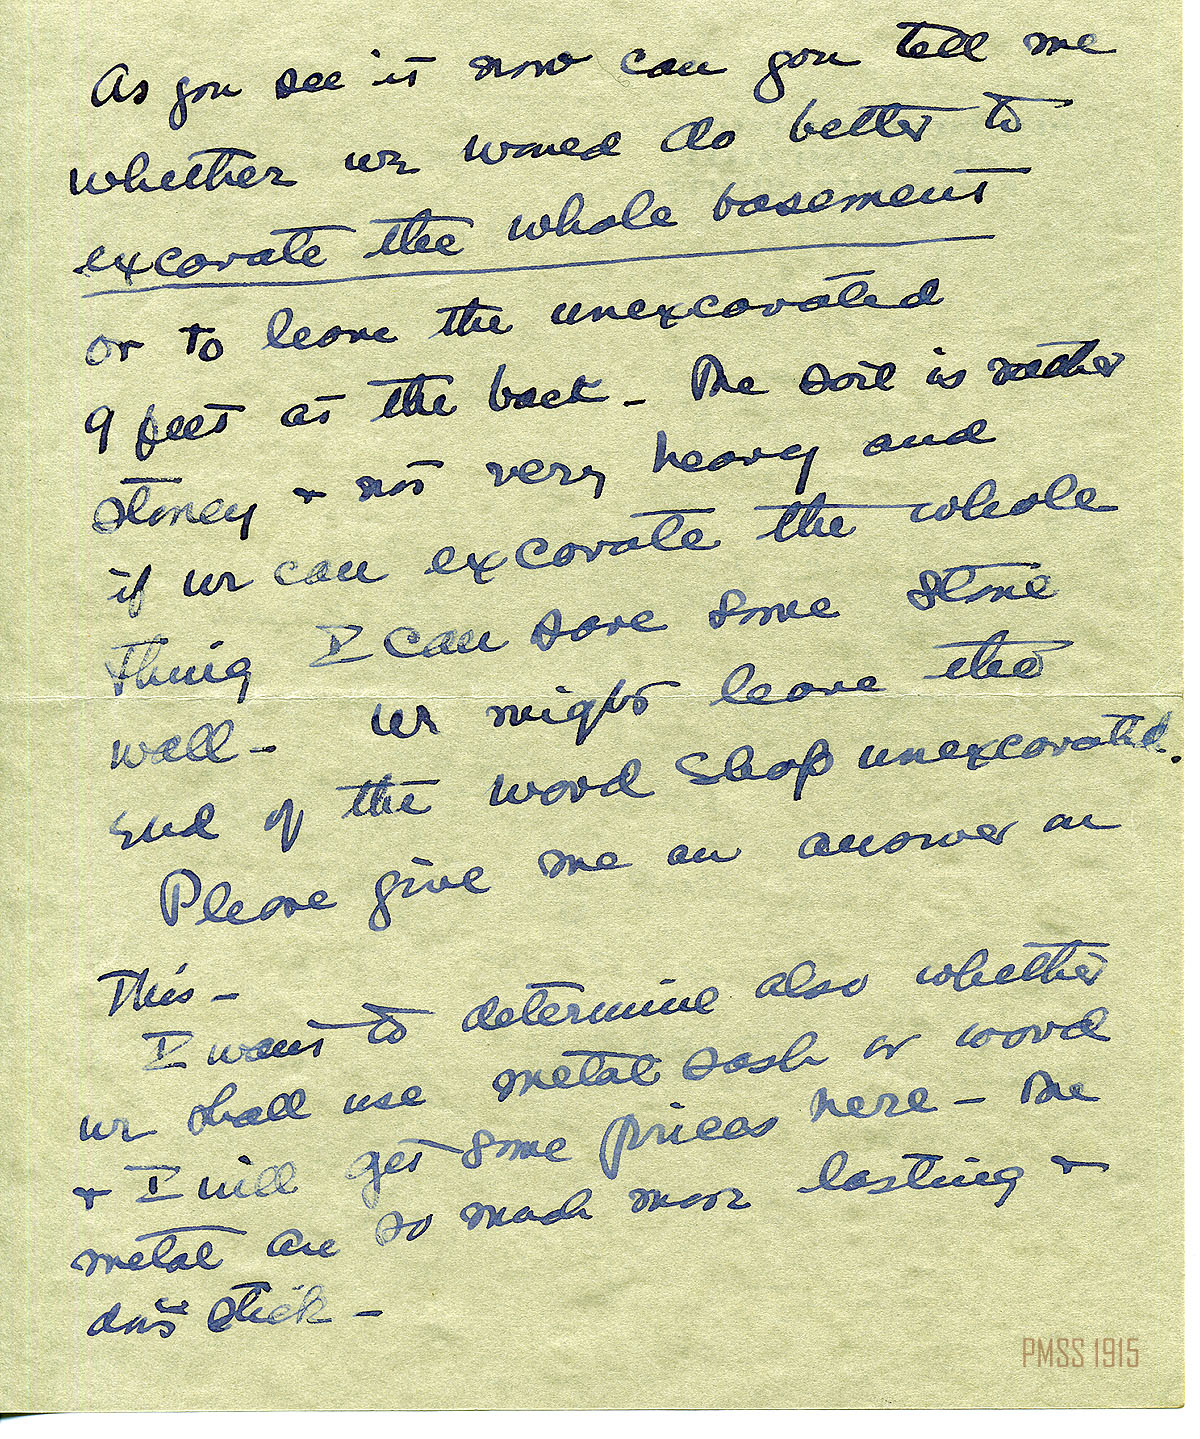 As you see it now can you tell me
whether we would do better to
excavate the whole basement
or to leave the unexcavated
9 feet at the back - The soil is rather
stoney + not very heavy and
if we can excavate the whole
thing I can save some stone
wall - We might leave the
end of the wood shop unexcavated.
Please give me an answer on
This -
I want to determine also whether
we shall use metal sash or wood
+ I will get some prices here - The
metal are so much more lasting +
don't stick -
PMSS 1915